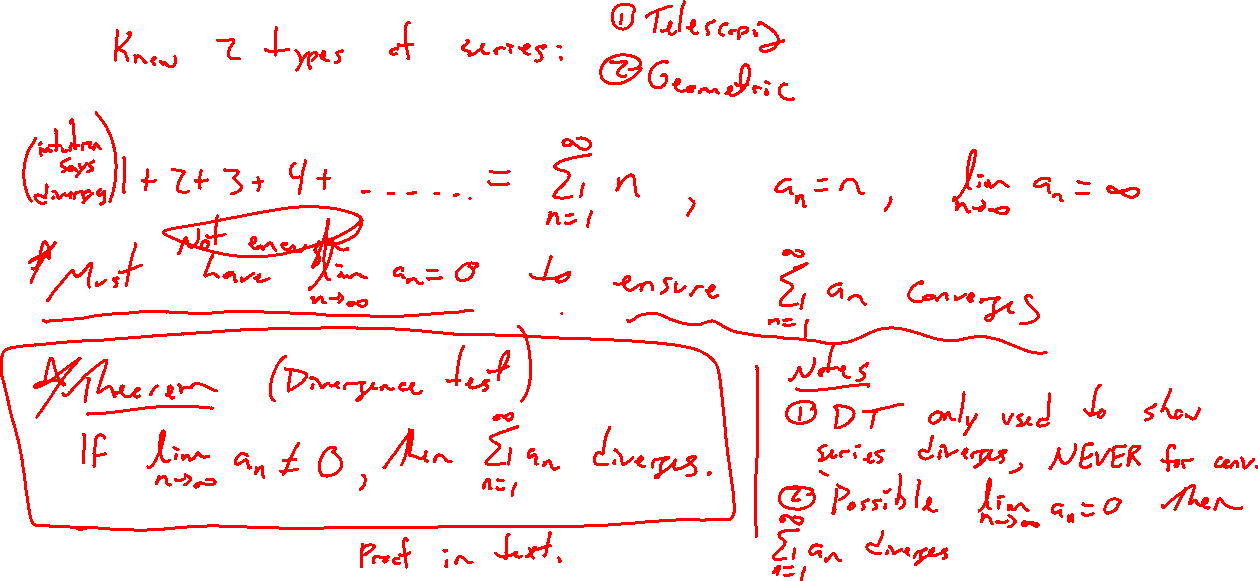 Know 2 types of series: ① Telescoping
② Geometric
(intuition says diverges) 1 + 2 + 3 + 4 + ...... = \sum_{n=1}^{\infty} n , a_n = n , \lim_{n→∞} a_n = ∞
Not enough
* Must have \lim_{n→∞} a_n = 0 to ensure \sum_{n=1}^{\infty} a_n converges
* Theorem (Divergence test)
If \lim_{n→∞} a_n ≠ 0, then \sum_{n=1}^{\infty} a_n diverges.
Proof in text.
Notes
① DT only used to show
series diverges, NEVER for conv.
② Possible \lim_{n→∞} a_n = 0 then
\sum_{n=1}^{\infty} a_n diverges